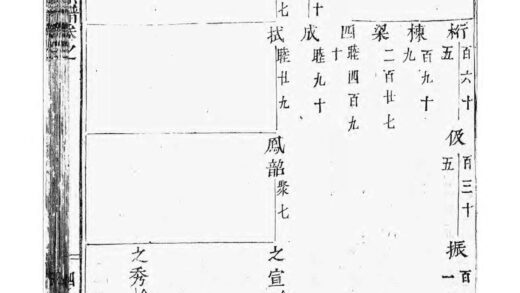 桁 百六十五
伋 百三十五
振 百一
棟 百九十九
梁 二百廿七
四睦四百九十
十
成 睦九十
七
拭 睦廿九
鳳韶 聚七
之宣
之秀
譜卷之
四